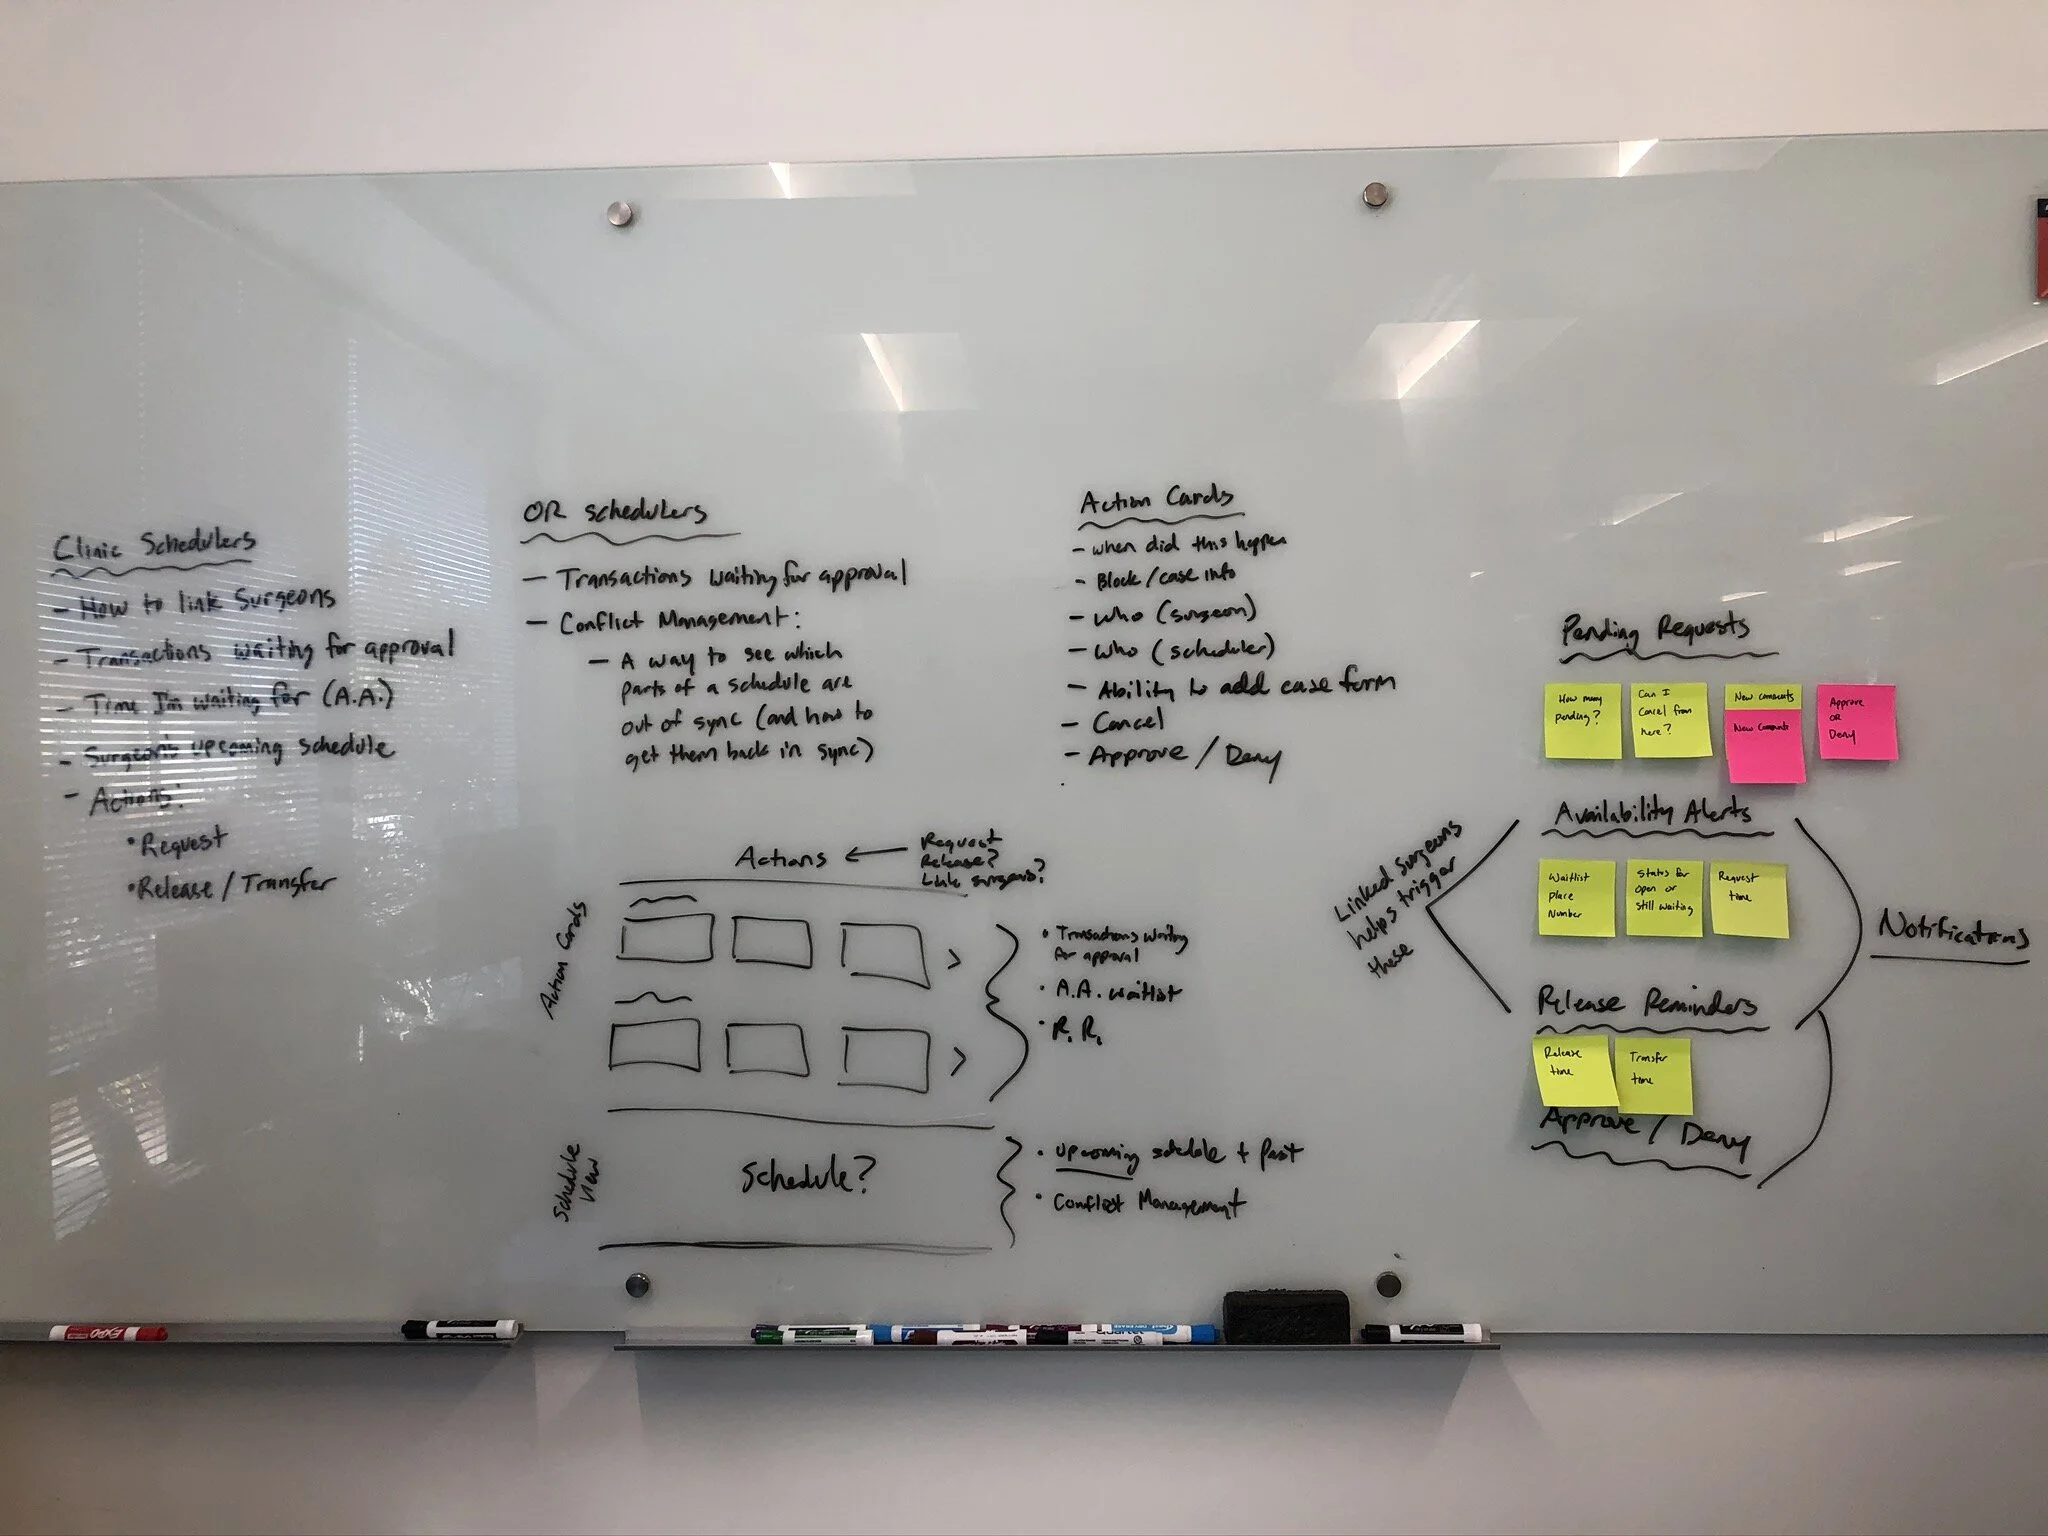 Clinic Schedulers
- How to link Surgeons
- Transactions waiting for approval
- Time I'm waiting for (A.A.)
- Surgeon's upcoming schedule
- Actions:
• Request
• Release / Transfer
OR Schedulers
- Transactions waiting for approval
- Conflict Management:
- A way to see which
parts of a schedule are
out of sync (and how to
get them back in sync)
Action Cards
- when did this happen
- Block / case info
- Who (surgeon)
- Who (scheduler)
- Ability to add case form
- Cancel
- Approve / Deny
Actions ←
Request
Release?
Link surgeons?
Action Cards
• Transactions waiting
for approval
• A.A. waitlist
• R. R.
Schedule
View
Schedule?
• Upcoming schedule + Past
• Conflict Management
Pending Requests
How many
pending?
Can I
Cancel from
here?
New comments
New comments
Approve
OR
Deny
Linked surgeons
helps trigger
these
Availability Alerts
Waitlist
place
Number
Status for
open or
still waiting
Request
time
Release Reminders
Release
time
Transfer
time
Approve / Deny
Notifications
EXPO